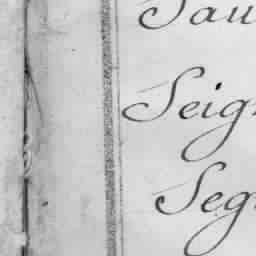 Sau
Seig
Seg